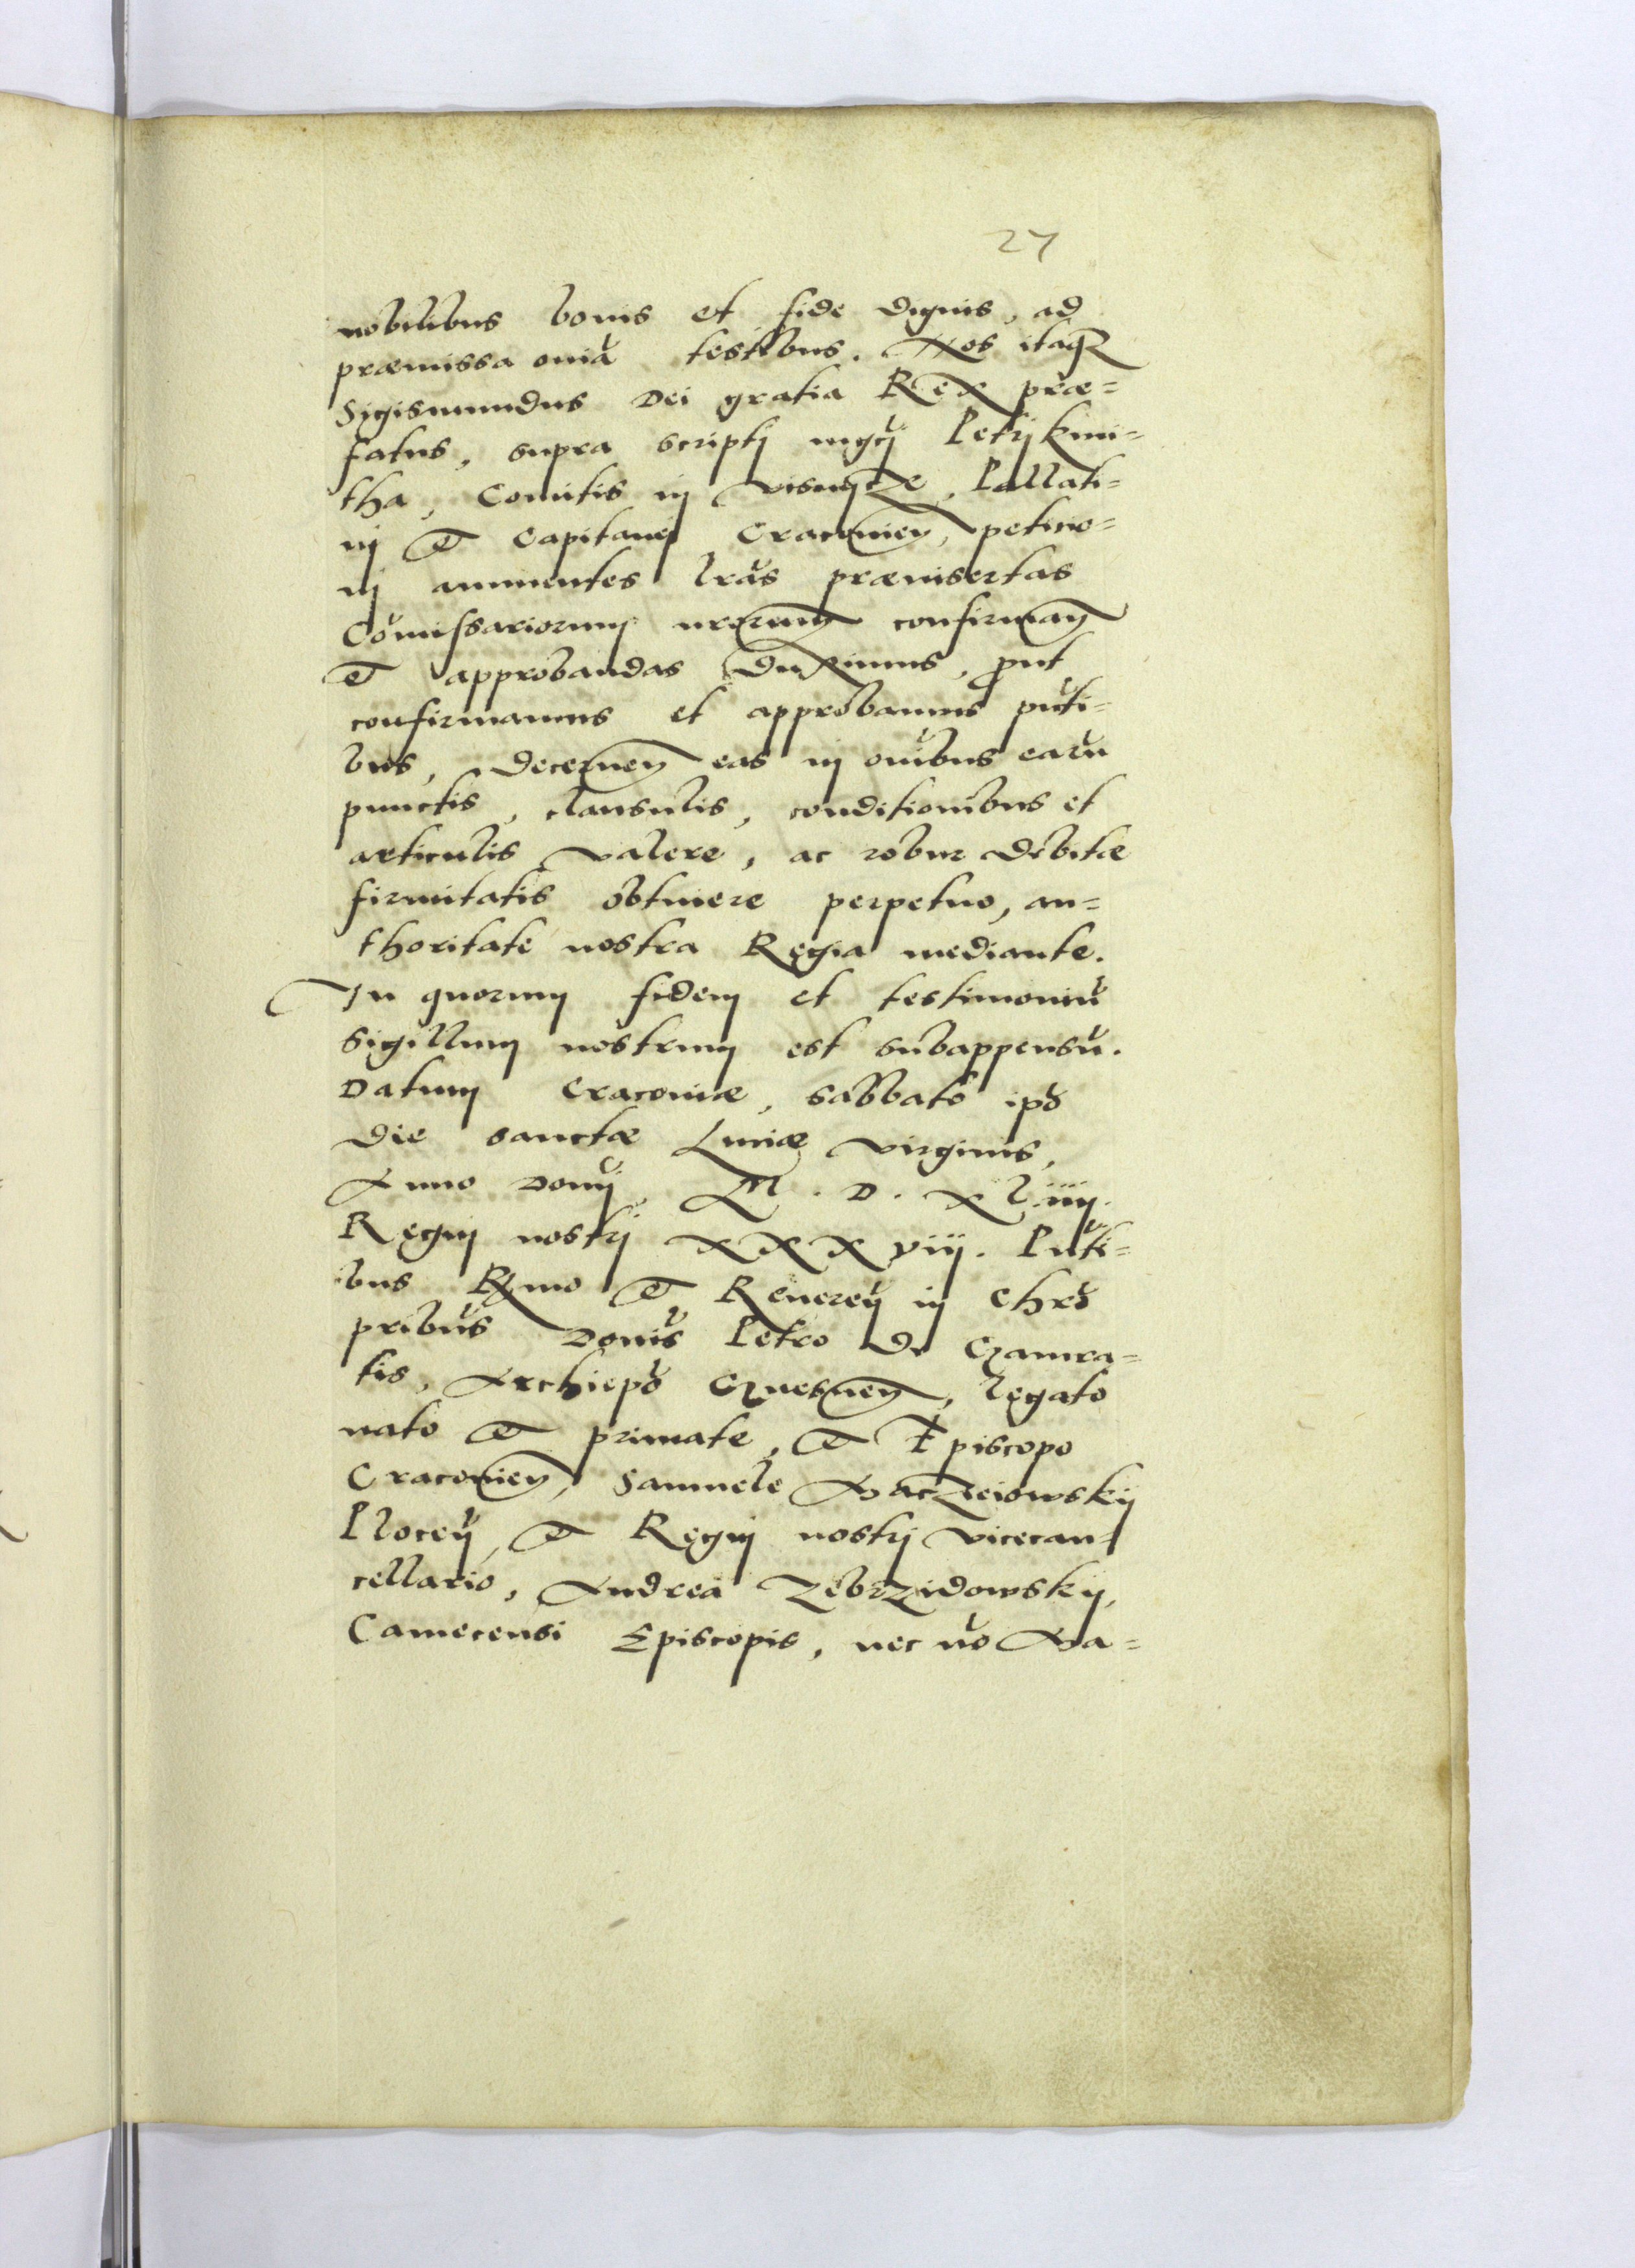 27
nobilibus bonis et fide dignis, ad
præmissa oniã testibus. Nos itaq3
Sigismundus Dei gratia Rex præ=
fatus, supra scriptj mgcj Petrj kmi=
tha, Comitis in Visnicze, Pallati=
nj et Capitanej Cracovien, petitio=
nj annuentes lrãs præinsertas
Cõmissariorum nrorum confirman
et approbandas duximus, prout
confirmamus et approbamus pñti=
bus, decernen eas in oñibus earũ
punctis, clausulis, conditionibus et
articulis valere, ac robur debitæ
firmitatis obtinere perpetuo, au=
thoritate nostra Regia mediante.
In quorum fidem et testimoniũ
Sigillum nostrum est subappensũ.
Datum Cracoviæ, sabbato ipõ
die sanctæ Luciæ virginis,
Anno Domĩ M. D. xliiij.
Regnj nostrj xxxviij. Pñti=
bus Rmo et Reveren in Chrõ
pribũs Domĩs Petro de Gamra=
tis, Archiepõ Gnesnen, legato
nato et primate, et Episcopo
Cracovien, Samuele Macżieiowskij
Plocen, et Regnj nostrj vicecan=
cellario, Andrea Zebrzidowskij,
Camecensi Episcopis, nec nõ Ma=